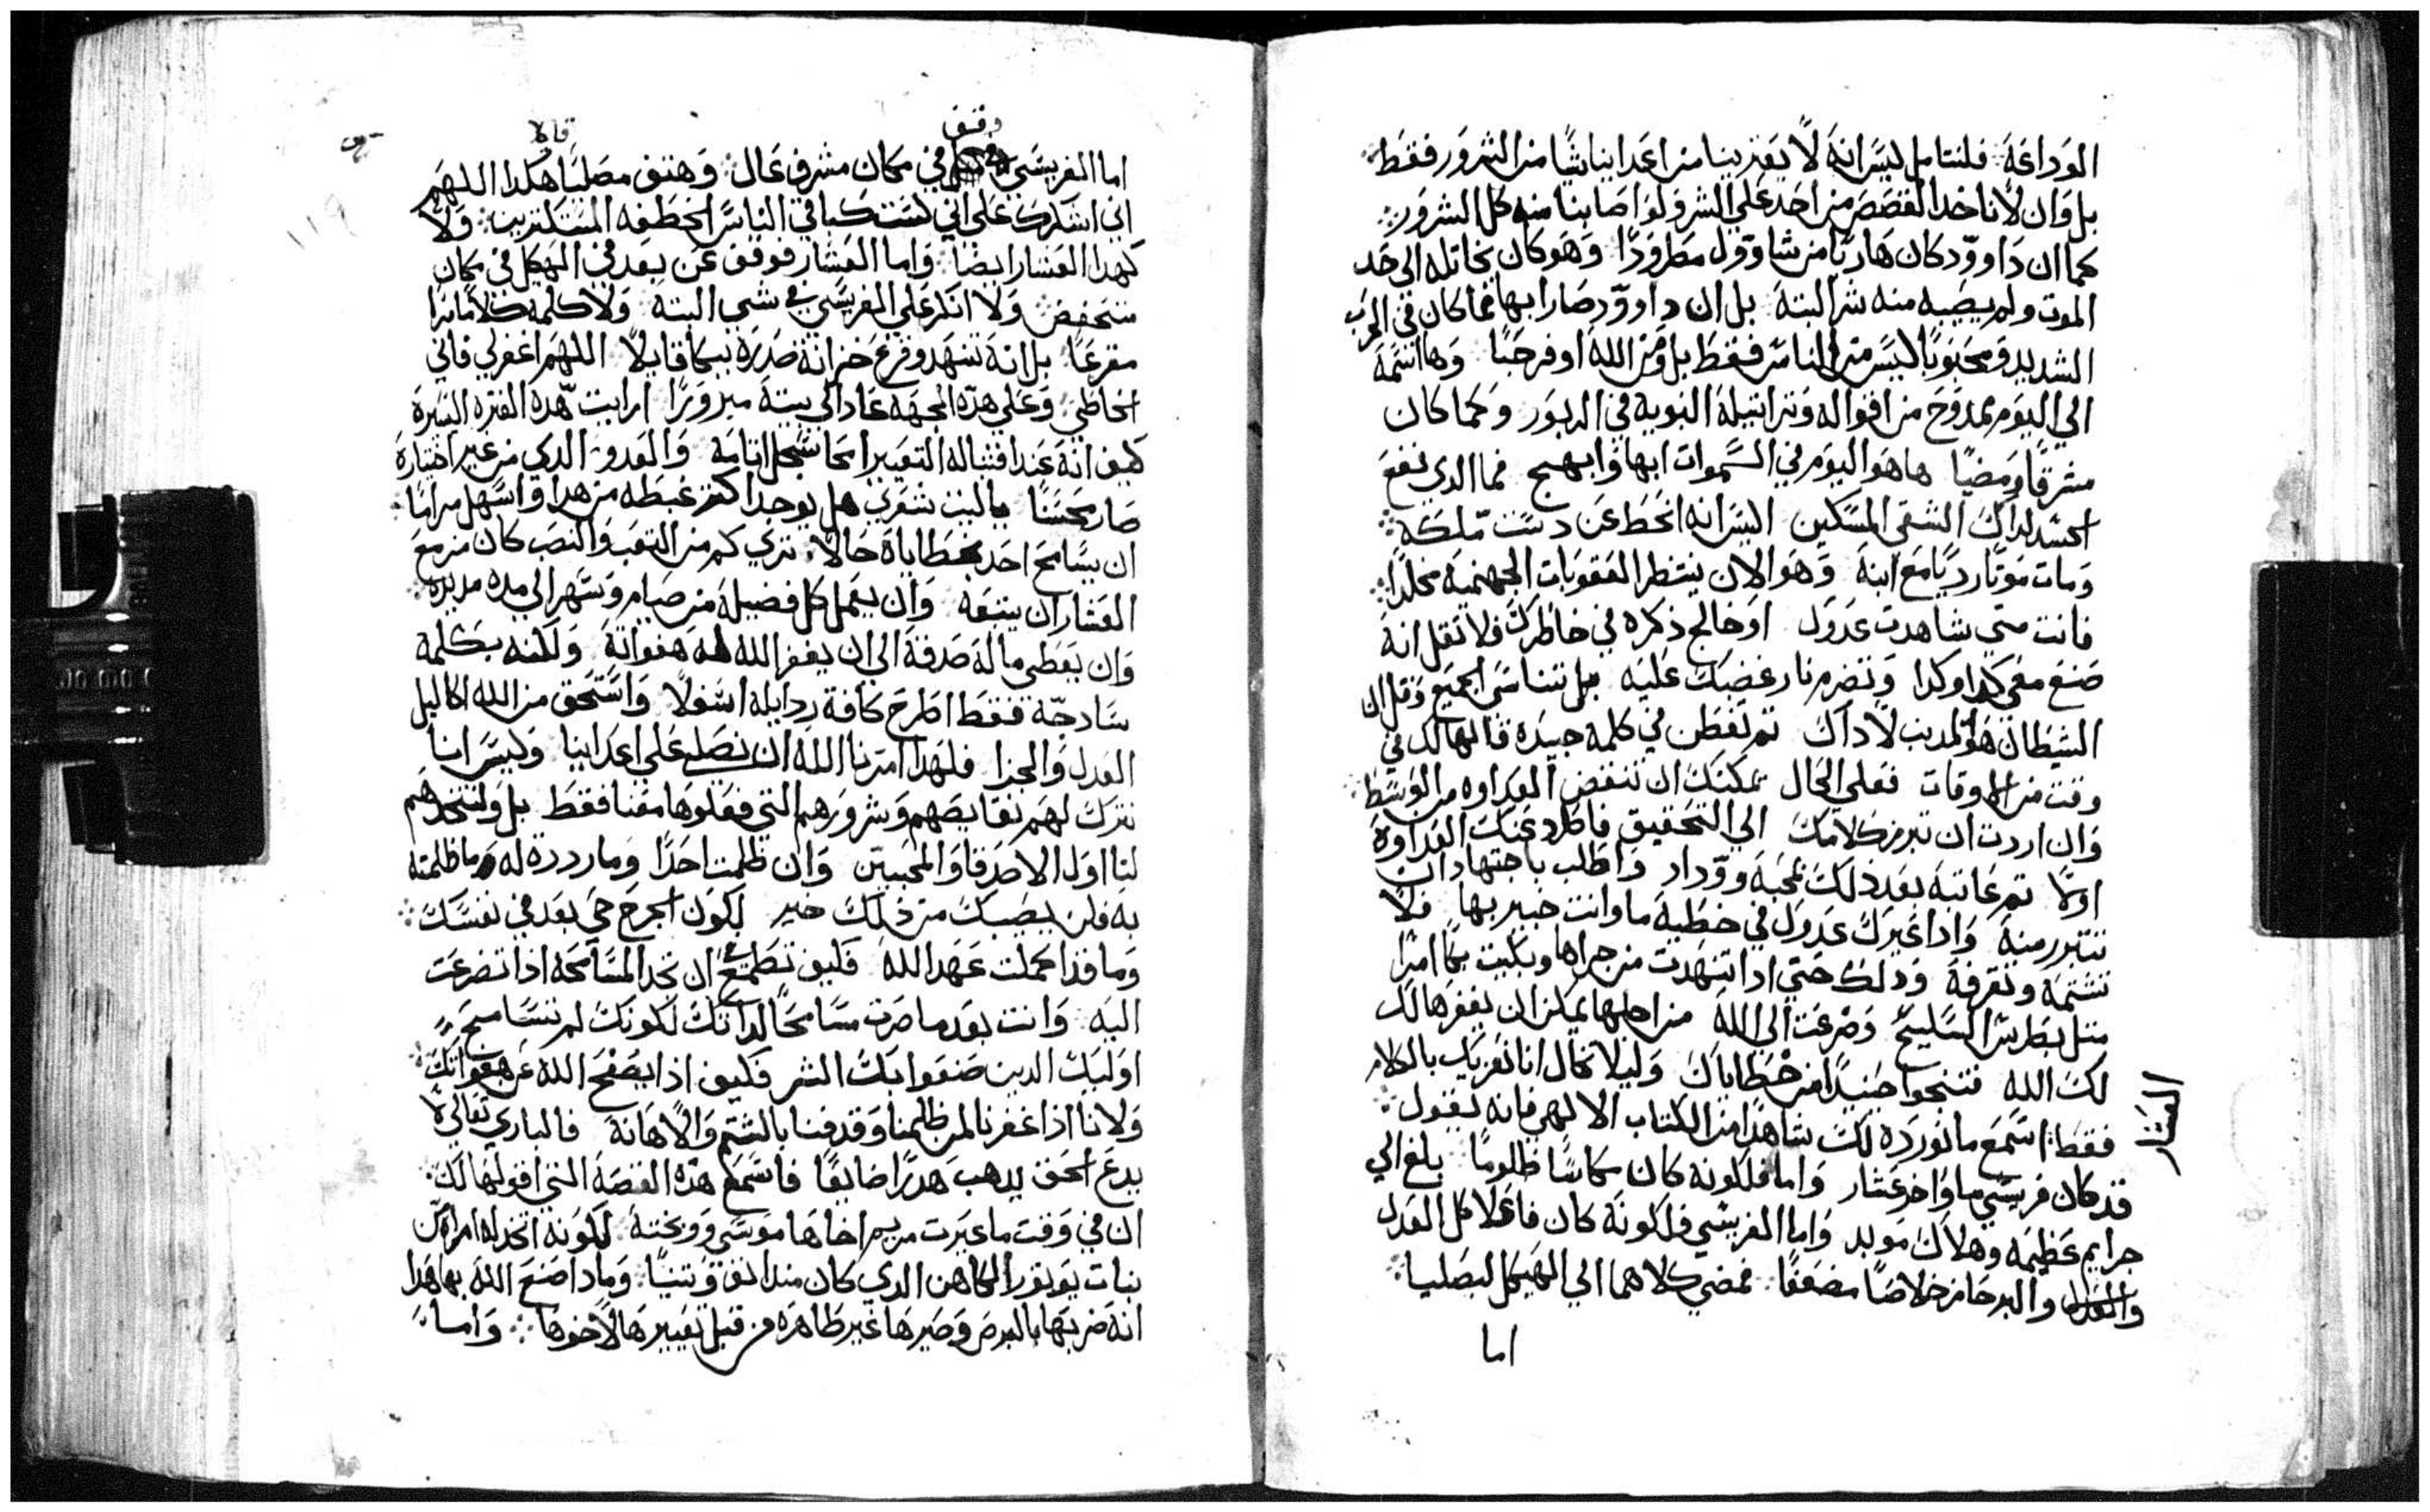 الوداعة فلنتامل ليس انه لا يعترينا من اعداينا شيًا من الشرور فقط
بل وان لا ناخد القصص من احد علي الشر ولو اصابنا منه كل الشرور
كما ان داوود كان هاربًا من شاوول مطرودًا وهو كان يخاتله الى حد
الموت ولم يصيبه منه شر البته بل ان داوود صار ابها مما كان في الحرب
الشديد ومحبوبًا ليس من الناس فقط بل ومن الله اوفر حبًا وها اسمه
الي اليوم ممدوح من افواله وتراتيله النبوية في الزبور وكما كان
مشرقًا ومضيًا هاهو اليوم في السموات ابها وابهج فما الدي نفع
الحسد لداك الشقي المسكين اليس انه انحط عن دست ملكه
ومات موتًا رديًا مع ابنه وهو الان ينتظر العقوبات الجهنمية مخلدًا
فانت متي شاهدت عدوك او خالج ذكره في خاطرك فلا تقل انه
صنع معي كدا وكدا وتضرم نار غضبك عليه بل تناسي الجميع وقل ان
الشيطان هو المدنب لا داك تم تفطن في كلمه جيده قالها لك في
وقت من الاوقات فعلي الحال يمكنك ان تنقض العداوه من الوسط
وان اردت ان تبرز كلامك الى التحقيق فاطرد عنك العداوة
اولًا تم عاتبه بعد ذلك بمحبة ووداد واطلب باجتهاد ان
تتبرر منه واذا عيرك عدوك في خطية ما وانت خبير بها فلا
تشتمه وتقرفه ودلك حتي ادا تنهدت من جراها وبكيت بكًا امرًا
متل بطرس السليح وضرعت الى الله من اجلها يمكن ان يغفرها لك
لك الله فتنجوا حنيدًا من خطاياك وليلا تخال انا نعزيك بالكلام
فقط اسمع ما نورده لك شاهدًا من الكتاب الالهي فانه يقول
قد كان فريسي ما واخر عشار واما فلكونه كان مكاسًا ظلومًا بلغ الي
العشار
جرايم عظيمه وهلاك موبد واما الفريسي فلكونه كان فاعلًا كل العدل
والعدل والبر حاز خلاصًا مضعفًا فمضي كلاهما الي الهيكل ليصليا
اما
وقف
قايلا
اما الفريسي في مكان مشرف عال وهتف مصليًا هكدا اللهم
اني اشكرك على اني لست كباقي الناس الخطفه المستكترين ولا
كهدا العشار ايضًا واما العشار فوقف عن بعد في الهيكل في مكان
منخفض ولا انكر علي الفريسي في شي البته ولا كلمه كلامًا مرًا
مقرعًا بل انه تنهد وقرع خزانة صدره ببكا قايلًا اللهم اغفرلي فاني
الخاطي وعلي هده الجهه عاد الى بيته مبرورًا ارايت هده الفتره اليسرة
كيف انه عند اقتباله التعيير امحا سجل اتامه والعدو الدي من غير اختياره
صار محسنًا ياليت شعري هل يوجد اكتر غبطه من هدا واسهل مرامًا
ان يسامح احد بخطاياه حالًا تري كم من التعب والنصب كان مزمع
العشار ان يتبعه وان يعمل كل فضيله من صيام وسهر الي مده مديده
وان يعطي ماله صدقه الى ان يغفر الله له هفواته ولكنه بكلمة
سادجة فقط اطرح كافة ردايله اسفلًا واستحق من الله اكاليل
العدل والجزا فلهدا امرنا الله ان نصلي علي اعداينا وليس انا
نترك لهم نقايصهم وشرورهم التي فعلوها معنا فقط بل ولنتخدهم
لنا اول الاصدقا والمحبين وان ظلمت احدًا وما رددة له ما ظلمته
به فلن يصيبك من ذلك خير لكون الجرح حي بعد في نفسك
وما قد اكملت عهد الله فكيف تطمع ان تجد المسامحة اذا تضرعت
اليه وانت بعد ما صرت مسامحًا لداتك لكونك لم تسامح
اوليك الدين صنعوا بك الشر فكيف اذا يصفح الله عن هفواتك
ولانا اذا غفرنا لمن ظلمنا وقدفنا بالشتم والاهانة فالباري تعالي لا
يدع الحق يدهب هدرًا ضايعًا فاسمع هده القصه التي اقولها لك
ان في وقت ما عيرت مريم اخاها موسي ووبخته لكونه اتخد له امراه من
بنات يوبور الكاهن الدي كان مندانق وتنيًا ومادا صنع الله بها هدا
انه ضربها بالبرص وصيرها غير طاهره من قبل تعييرها لاخوها واما
١١٩